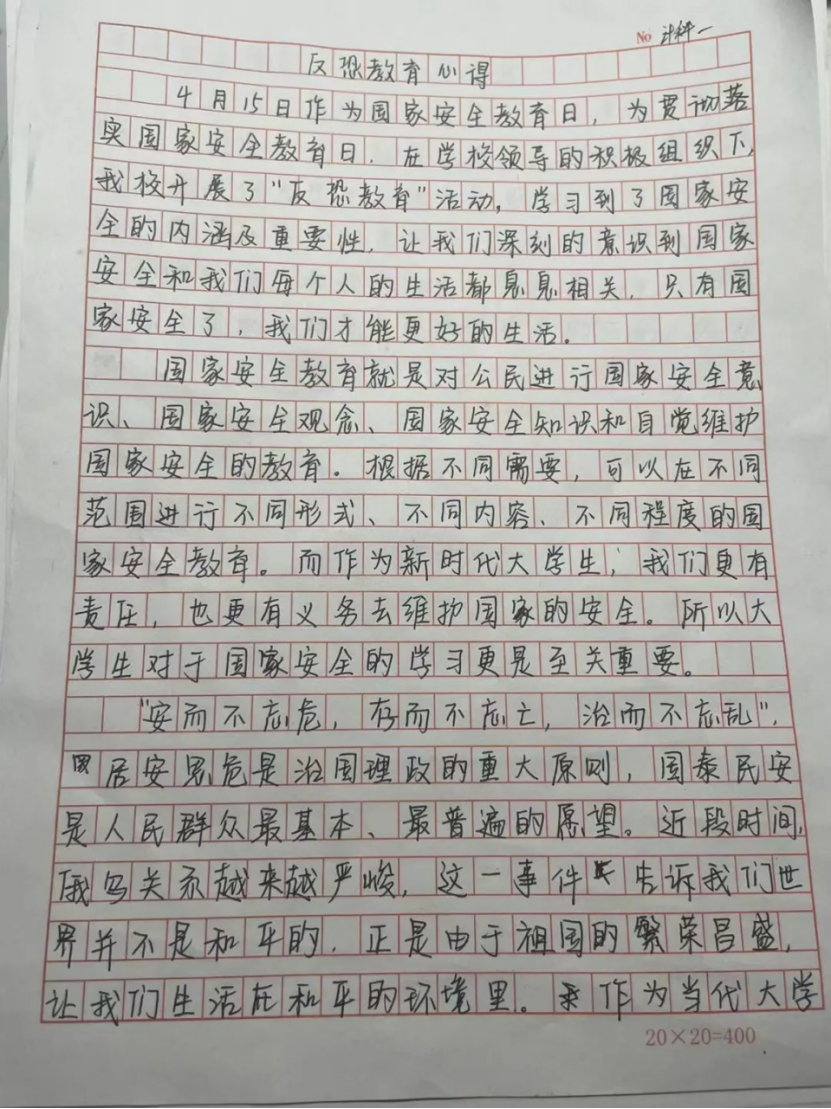 No 计科一
反恐教育心得
4月15日作为国家安全教育日，为贯彻落
实国家安全教育日．在学校领导的积极组织下，
我校开展了“反恐教育”活动，学习到了国家安
全的内涵及重要性，让我们深刻的意识到国家
安全和我们每个人的生活都息息相关．只有国
家安全了，我们才能更好的生活。
国家安全教育就是对公民进行国家安全意
识、国家安全观念、国家安全知识和自觉维护
国家安全的教育。根据不同需要，可以在不同
范围进行不同形式、不同内容、不同程度的国
家安全教育。而作为新时代大学生，我们更有
责任，也更有义务去维护国家的安全。所以大
学生对于国家安全的学习更是至关重要。
“安而不忘危，存而不忘亡，治而不忘乱”，
居安思危是治国理政的重大原则，国泰民安
是人民群众最基本、最普遍的愿望。近段时间，
俄乌关系越来越严峻，这一事件告诉我们世
界并不是和平的．正是由于祖国的繁荣昌盛，
让我们生活在和平的环境里。作为当代大学
20×20=400